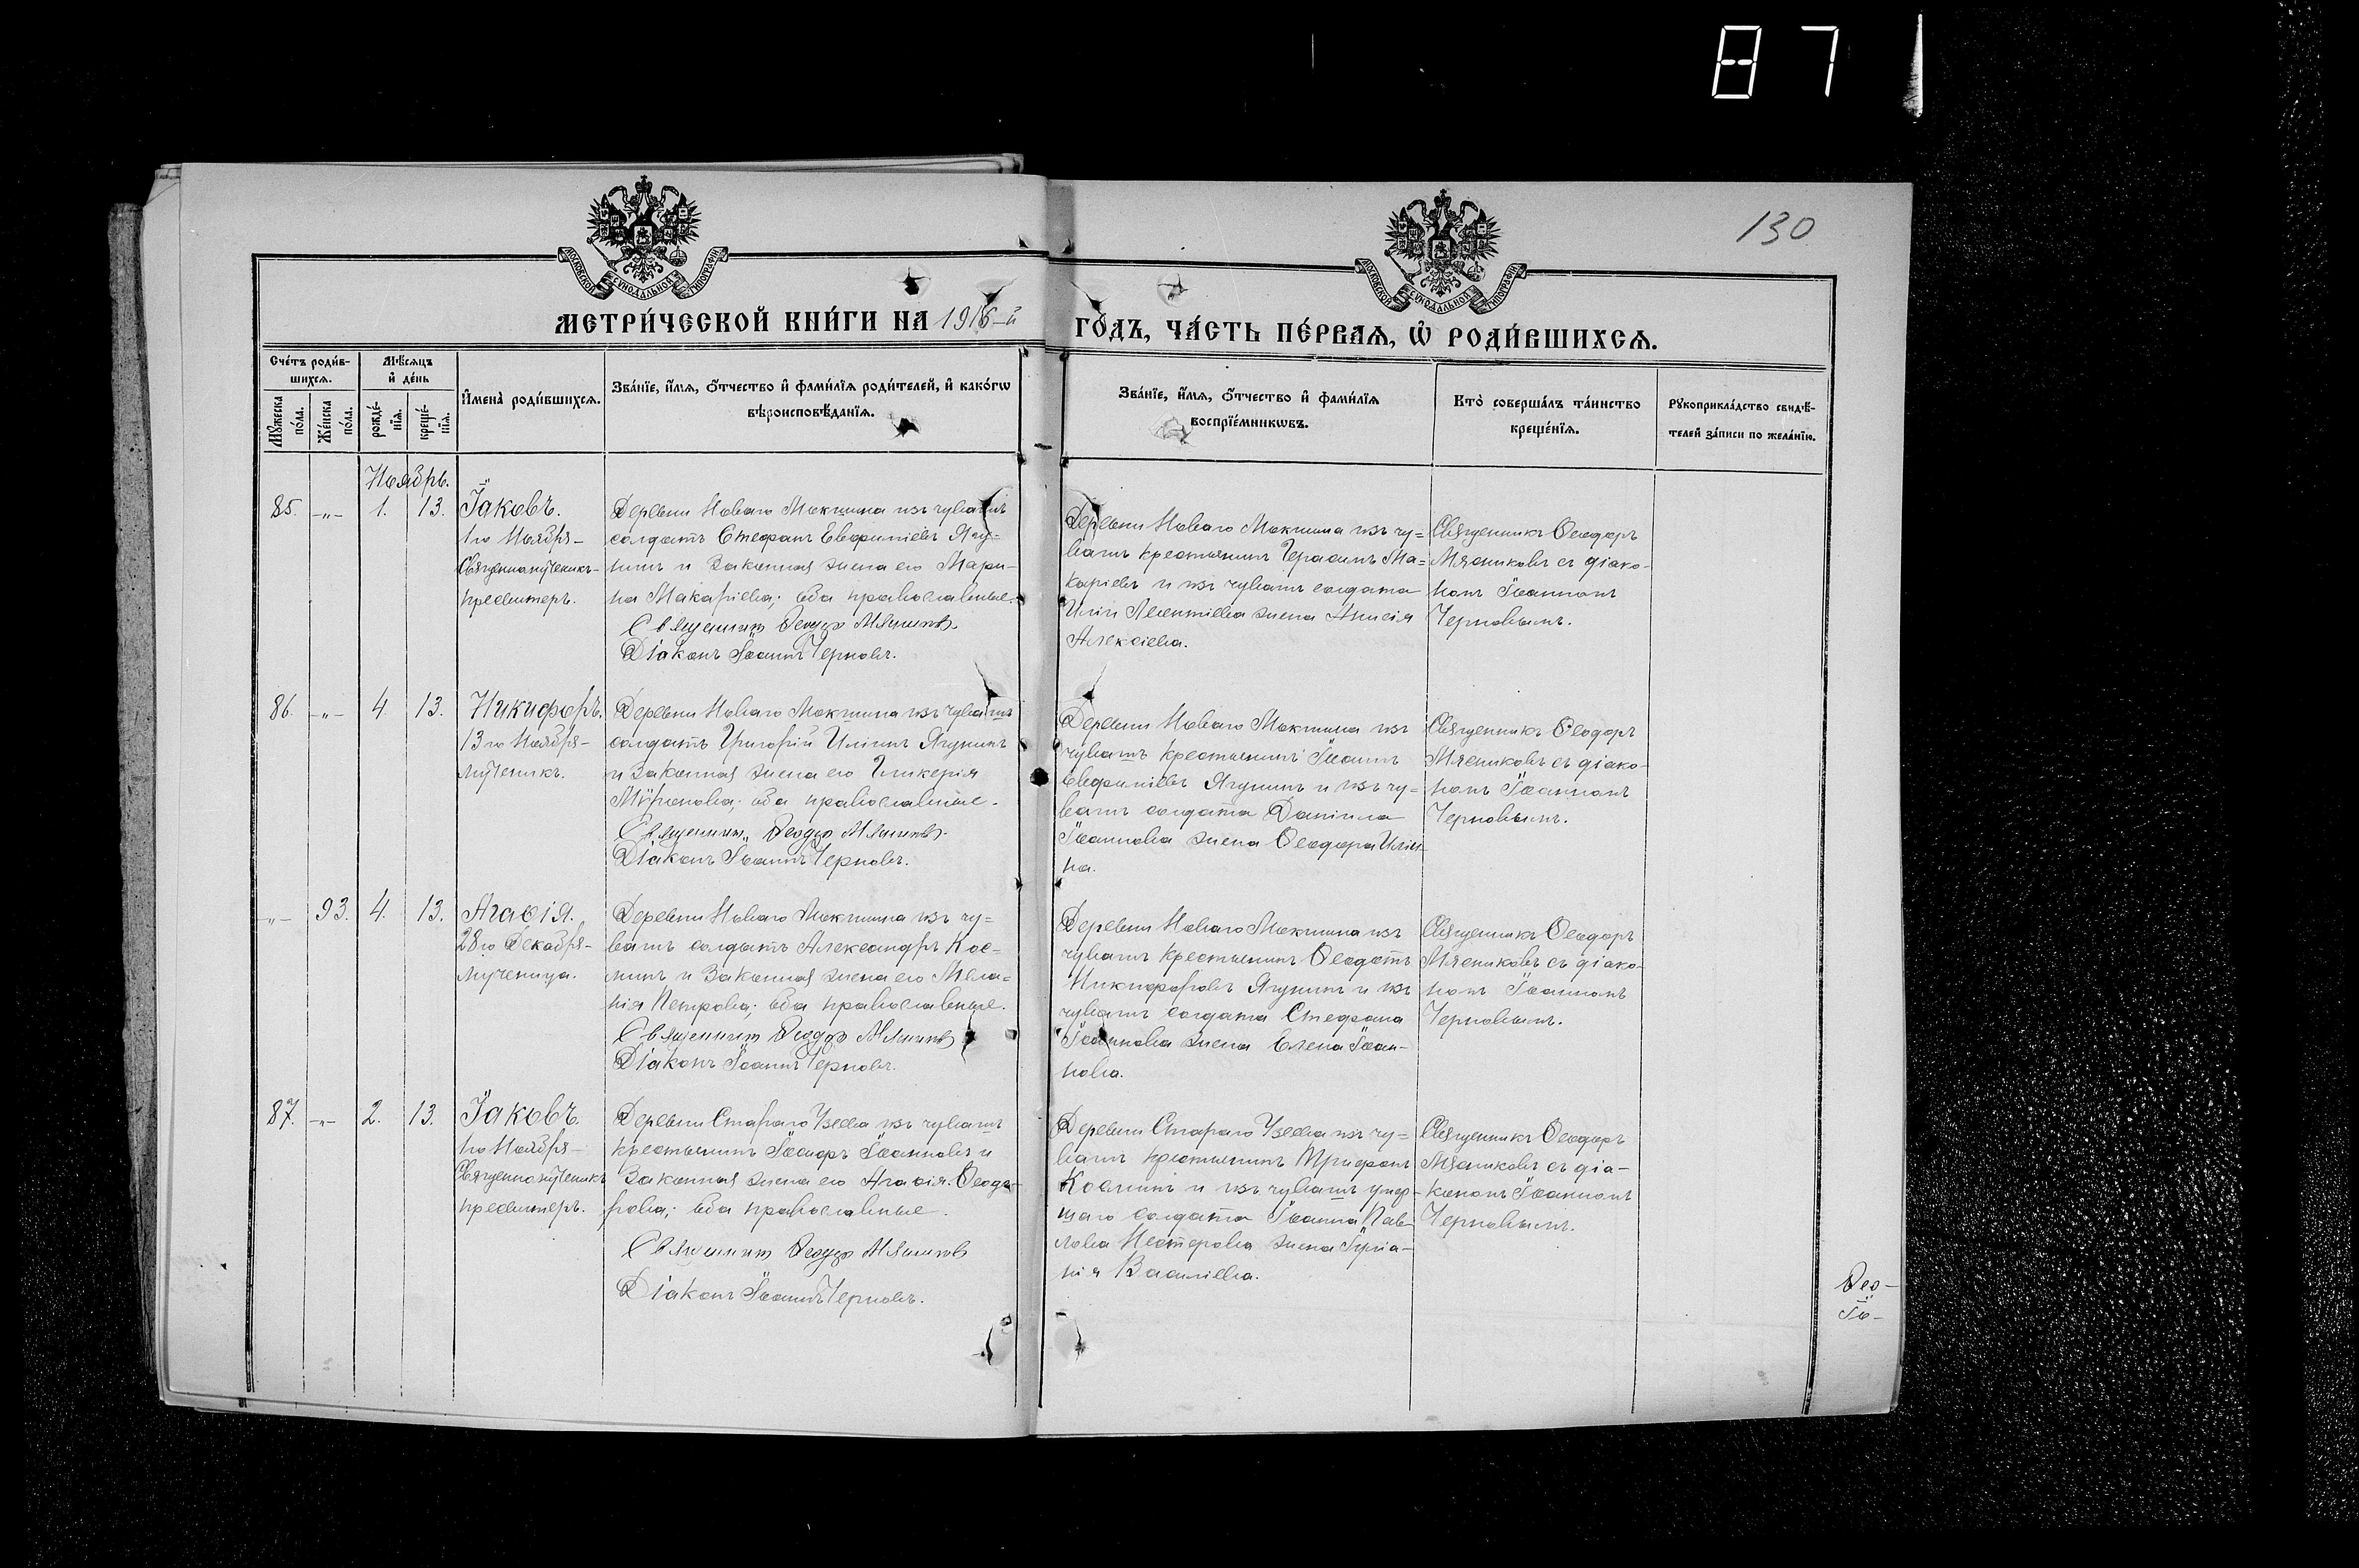 87
130
МОСКОВСКОЙ СѴНОДАЛЬНОЙ ТИПОГРАФІИ
МОСКОВСКОЙ СѴНОДАЛЬНОЙ ТИПОГРАФІИ
МЕТРИ́ЧЕСКОЙ КНИ́ГИ НА 1916-й ГО́ДЪ, ЧА́СТЬ ПЕ́РВАЯ, Ѡ РОДИ́ВШИХСЯ.
Сче́тъ роди́в-
шихсѧ.
Мꙋжеска
по́ла.
Же́нска
по́ла.
Мѣ́сѧцъ
и҆ де́нь
рожде́-
нїѧ.
креще́-
нїѧ.
И҆мена̀ роди́вшихсѧ.
Зва́нїе, и҆́мѧ, ѻ҆́тчество и҆ фами́лїѧ роди́телей, и҆ како́гѡ
вѣроисповѣ́данїѧ.
Зва́нїе, и҆́мѧ, ѻ҆́тчество и҆ фами́лїѧ
воспрїе́мникѡвъ.
Кто̀ соверша́лъ та́инство
креще́нїѧ.
Рꙋкоприкла́дство свидѣ́-
телей за́писи по жела́нїю.
Ноябрь.
85. -„- 1. 13. Іаковъ.
1го Ноября-
Священномученикъ-
пресвитеръ.
Деревни Новаго Мокшина изъ чувашъ
солдатъ Стефанъ Евфиміевъ Ягу=
нинъ и законная жена его Мари-
на Макаріева; оба православные.
Священникъ Ѳеодоръ Мясниковъ.
Діаконъ Іоаннъ Черновъ.
Деревни Новаго Мокшина изъ чу=
вашъ крестьянинъ Герасимъ Ма=
каріевъ и изъ чувашъ солдата
Иліи Леонтіева жена Анисія
Алексіева.
Священникъ Ѳеодоръ
Мясниковъ съ діако-
номъ Іоанномъ
Черновымъ.
86. -„- 4 13. Никифоръ.
13го Ноября-
мученикъ.
Деревни Новаго Мокшина изъ чувашъ
солдатъ Григорій Иліинъ Ягунинъ
и законная жена его Гликерія
Мѵронова; оба православные.
Священникъ Ѳеодоръ Мясниковъ.
Діаконъ Іоаннъ Черновъ.
Деревни Новаго Мокшина изъ
чувашъ крестьянинъ Іоаннъ
Евфиміевъ Ягунинъ и изъ чу=
вашъ солдата Даніила
Іоаннова жена Ѳеодора Иліи-
на.
Священникъ Ѳеодоръ
Мясниковъ съ діако-
номъ Іоанномъ
Черновымъ.
-„- 93. 4. 13. Агаѳія.
28го Декабря-
мученица.
Деревни Новаго Мокшина изъ чу=
вашъ солдатъ Александръ Кос-
минъ и законная жена его Мела=
нія Петрова; оба православные.
Священникъ Ѳеодоръ Мясниковъ
Діаконъ Іоаннъ Черновъ.
Деревни Новаго Мокшина изъ
чувашъ крестьянинъ Ѳеодотъ
Никифоровъ Ягунинъ и изъ
чувашъ солдата Стефана
Іоаннова жена Елена Іоан-
нова.
Священникъ Ѳеодоръ
Мясниковъ съ діако-
номъ Іоанномъ
Черновымъ.
87. -„- 2. 13. Іаковъ.
1го Ноября-
Священномученикъ
пресвитеръ.
Деревни Стараго Узеева изъ чувашъ
крестьянинъ Іоаннъ и
законная жена его Агаѳія Ѳеодо-
рова; оба православные.
Священникъ Ѳеодоръ Мясниковъ
Діаконъ Іоаннъ Черновъ.
Деревни Стараго Узеева изъ чу=
вашъ крестьянинъ Трифонъ
Косминъ и изъ чувашъ умер-
шаго солдата Іоанна Пав-
лова Нестерова жена Іуліа-
нія Василіева.
Священникъ Ѳеодоръ
Мясниковъ съ діа-
кономъ Іоанномъ
Черновымъ.
Ѳео-
Іо-